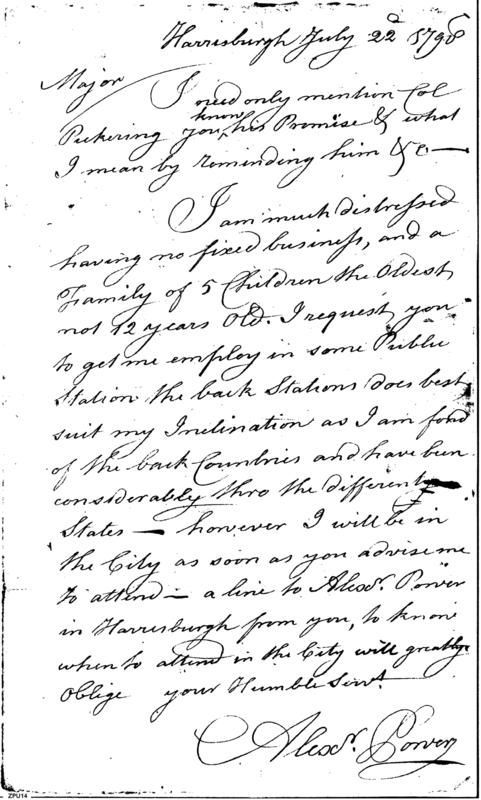 Harrisburgh July 22d 1798
Major
I need only mention Col
know
Pickering you, his Promise & what
I mean by reminding him &c —
I am much distressed
having no fixed business, and a
Family of 5 Children the Oldest
not 12 years Old. I request you
to get me employ in some Public
Station the back Stations does best
suit my Inclination as I am fond
of the back Countries and have been
considerably thro the different
States — however I will be in
the City as soon as you advise me
to attend — a line to Alexdr. Power
in Harrisburgh from you, to know
when to attend in the City will greatly
oblige your Humble Servt.
Alexdr. Power
ZPU14